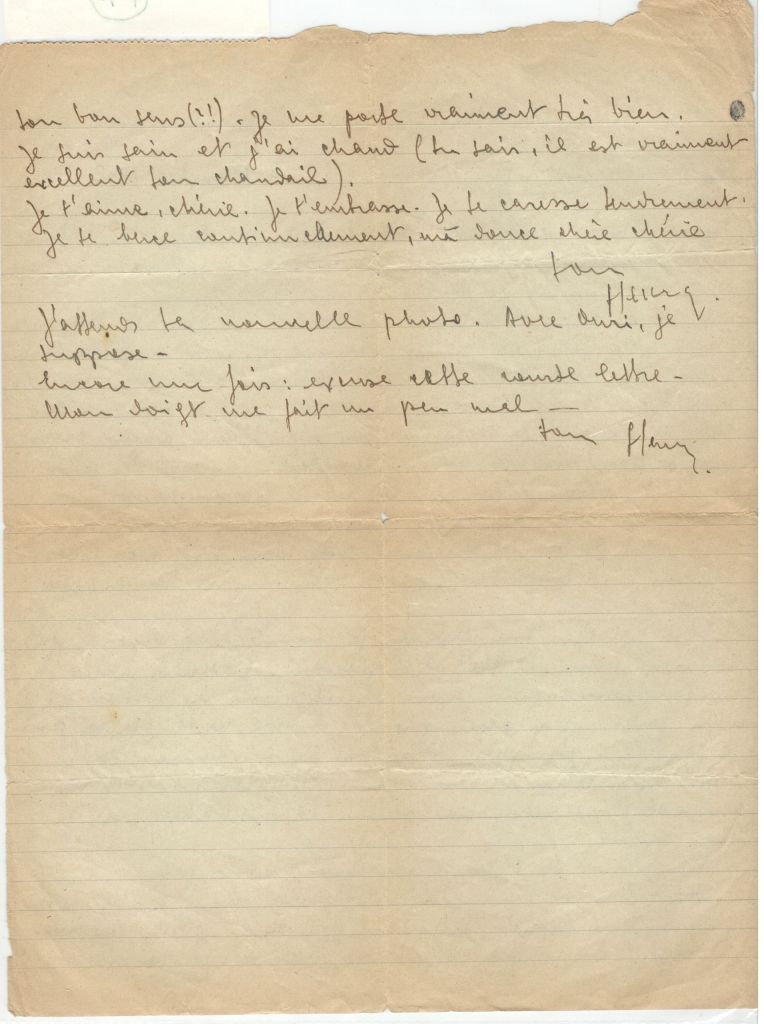 ton bon sens (?!). Je me porte vraiment très bien.
Je suis sain et j'ai chaud (tu sais, il est vraiment
excellent ton chandail).
Je t'aime, chérie. Je t'embrasse. Je te caresse tendrement.
Je te berce continuellement, ma douce chère chérie
ton
Henry.
J'attends ta nouvelle photo. Avec Ouri, je
suppose -
Encore une fois : excuse cette courte lettre -
Mon doigt me fait un peu mal —
ton Henry.